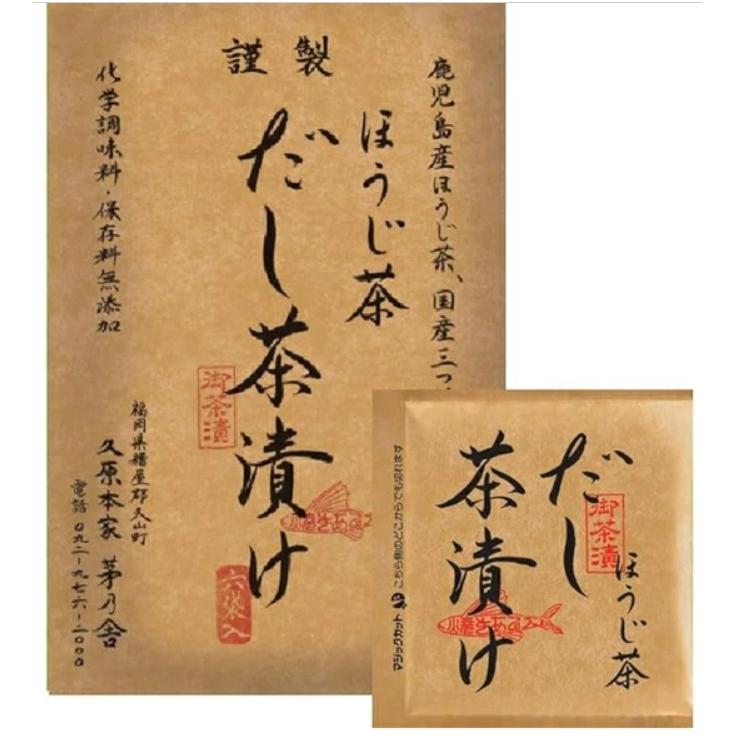 謹製
鹿児島産ほうじ茶、国産三つ
ほうじ茶
だし茶漬け
御茶漬
六袋入
化学調味料・保存料無添加
福岡県糟屋郡久山町
久原本家 茅乃舎
電話 〇九二-九七六-二〇〇〇
だし
茶漬け
御茶漬
ほうじ茶
こちら側のどこからでも切れます
マジックカット